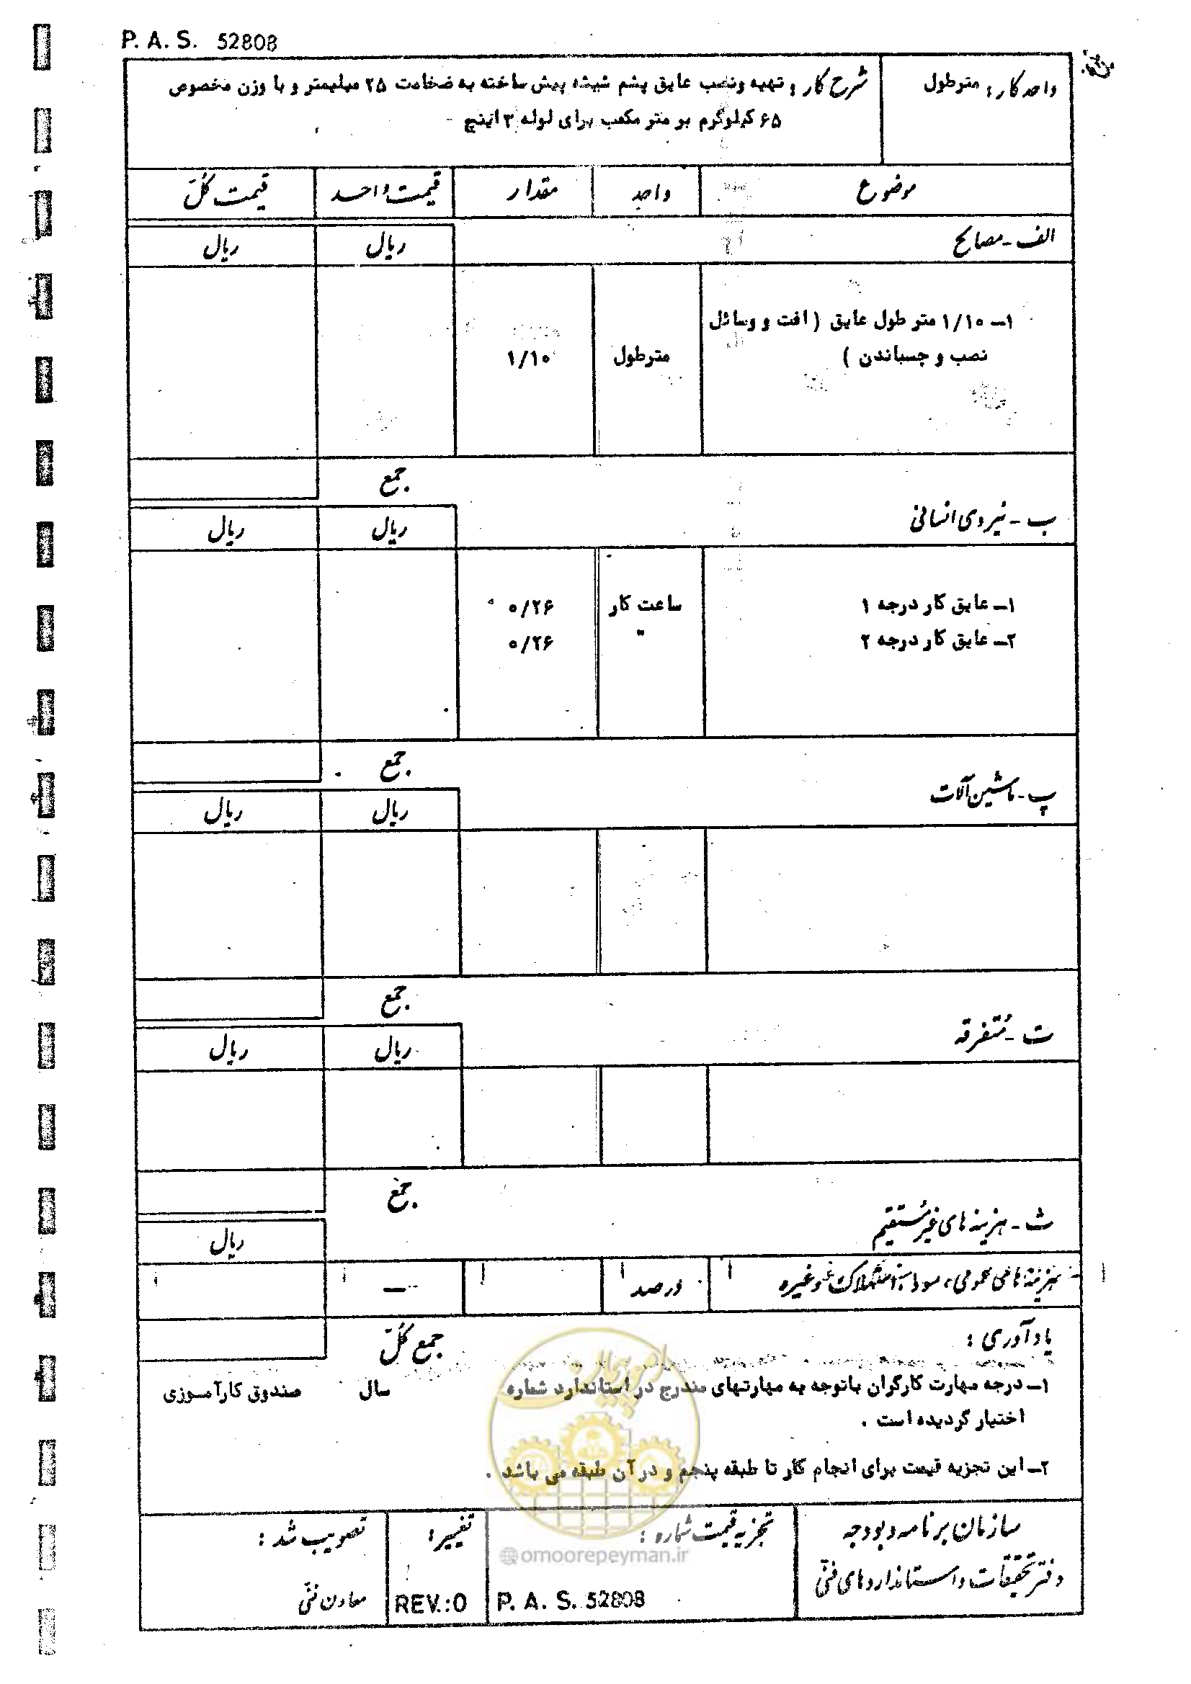 P. A. S. 52808
واحد کار : مترطول
شرح کار : تهیه ونصب عایق پشم شیشه پیش ساخته به ضخامت ۲۵ میلیمتر و با وزن مخصوص
۶۵ کیلوگرم بر متر مکعب برای لوله ۳ اینچ
موضوع واحد مقدار قیمت واحد قیمت کل
الف - مصالح ریال ریال
۱ـ ۱/۱۰ متر طول عایق ( افت و وسائل
نصب و چسباندن ) مترطول ۱/۱۰
جمع
ب - نیروی انسانی ریال ریال
۱ـ عایق کار درجه ۱ ساعت کار ۰/۲۶
۲ـ عایق کار درجه ۲ " ۰/۲۶
جمع
پ - ماشین آلات ریال ریال
جمع
ت - متفرقه ریال ریال
جمع
ث - هزینه های غیر مستقیم ریال
هزینه های عمومی ، سود ، استهلاک و غیره درصد —
یادآوری : جمع کل
۱ـ درجه مهارت کارگران باتوجه به مهارتهای مندرج در استاندارد شماره سال صندوق کارآموزی
اختیار گردیده است .
۲ـ این تجزیه قیمت برای انجام کار تا طبقه پنجم و درآن طبقه می باشد .
امور پیمان
@omoorepeyman.ir
سازمان برنامه و بودجه
دفتر تحقیقات و استانداردهای فنی
تجزیه قیمت شماره :
P. A. S. 52808
تغییر :
REV.:0
تصویب شد :
معاون فنی